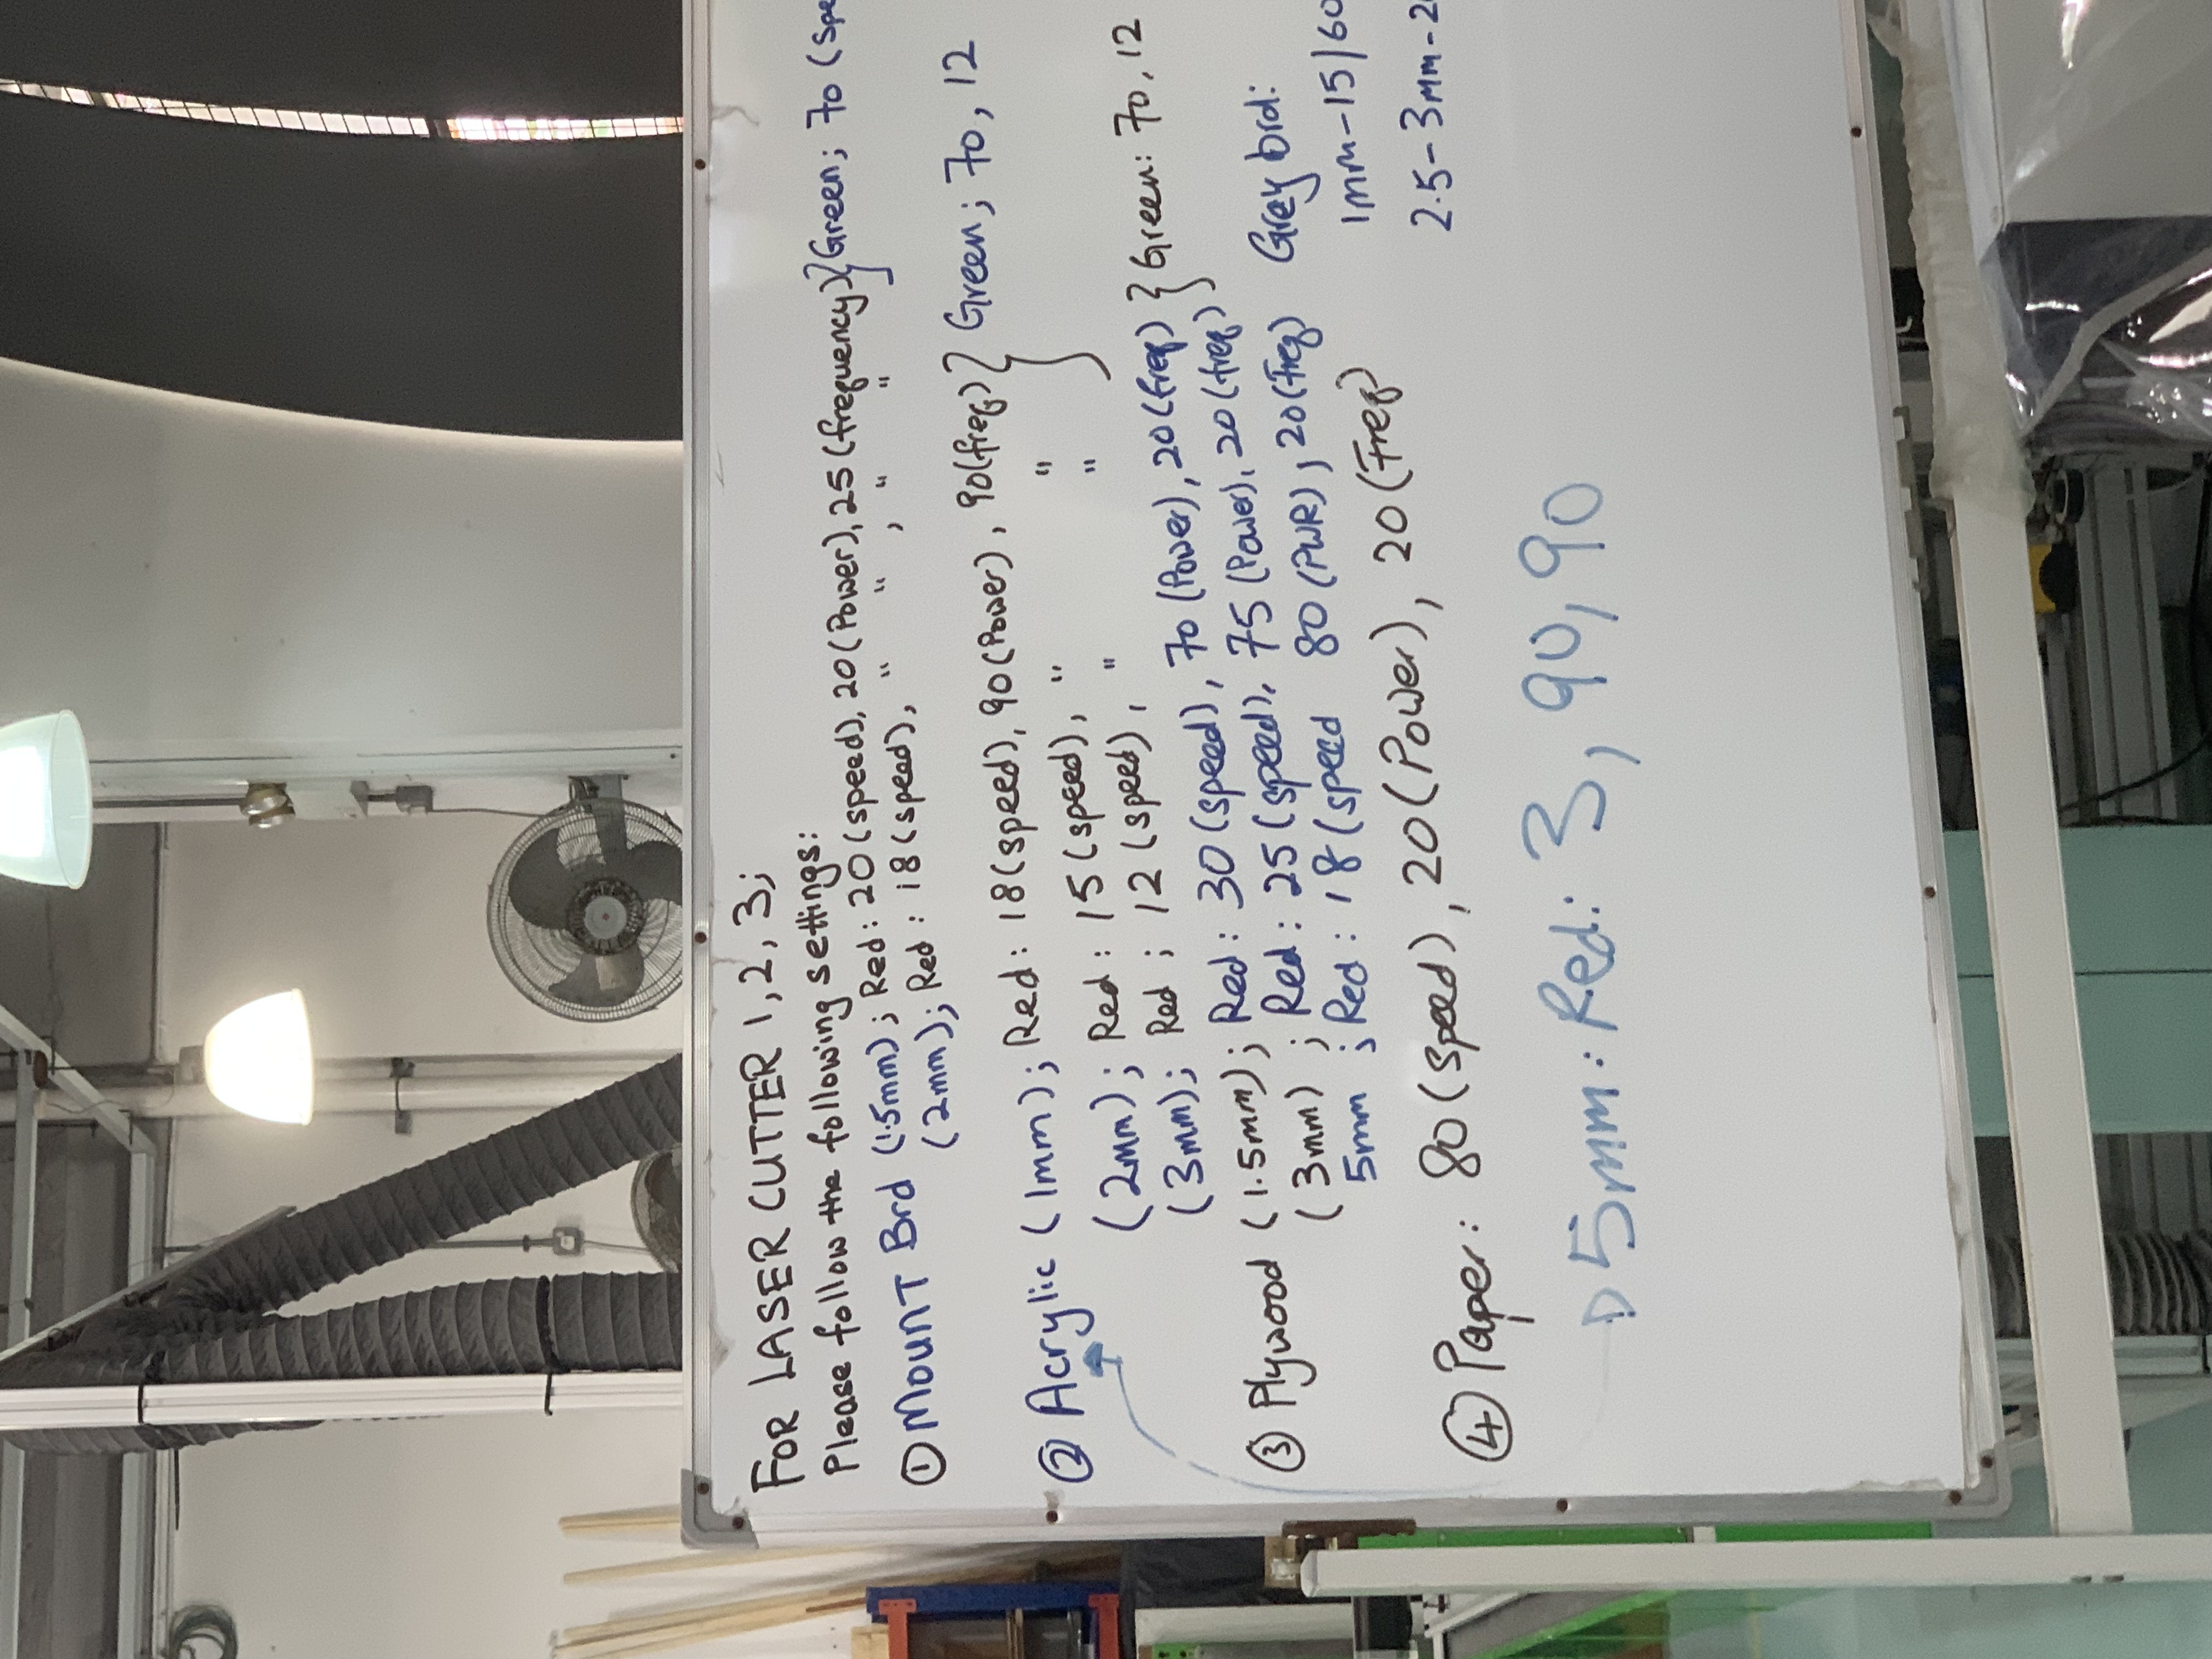 FOR LASER CUTTER 1, 2, 3;
Please follow the following settings:
① Mount Brd (1.5mm); Red: 20 (speed), 20 (Power), 25 (frequency) } Green; 70 (Spe
(2mm); Red: 18 (speed), " " , " "
② Acrylic (1mm); Red: 18 (speed), 90 (Power), 90 (freq) } Green; 70, 12
(2mm); Red: 15 (speed), " "
(3mm); Red; 12 (speed), " "
③ Plywood (1.5mm); Red: 30 (speed), 70 (Power), 20 (freq) } Green: 70, 12
(3mm) ; Red: 25 (speed), 75 (Power), 20 (freq)
5mm ; Red: 18 (speed 80 (PWR), 20 (Freq)
Grey brd:
1mm-15/60
2.5-3mm-2
④ Paper: 80 (speed), 20 (Power), 20 (Freq)
5mm: Red: 3, 90, 90